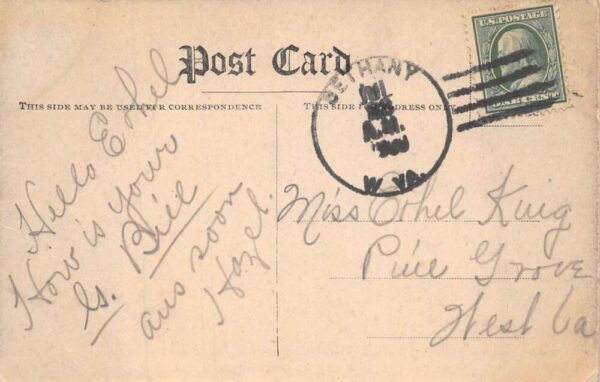 Post Card
THIS SIDE MAY BE USED FOR CORRESPONDENCE
THIS SIDE FOR ADDRESS ONLY
U.S. POSTAGE
ONE CENT
BETHANY
A.M.
W. VA.
Hello Ethel
How is your
Bill
ans soon
Hazel.
Miss Ethel King
Pine Grove
West Va